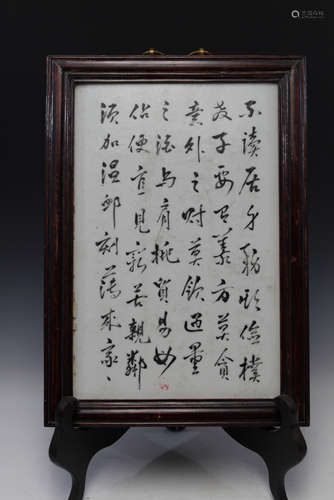 不讀居身務期儉樸
教子要有義方莫貪
意外之財莫飲過量
之酒與肩挑貿易毋
佔便宜見窮苦親鄰
須加溫卹刻薄成家〻